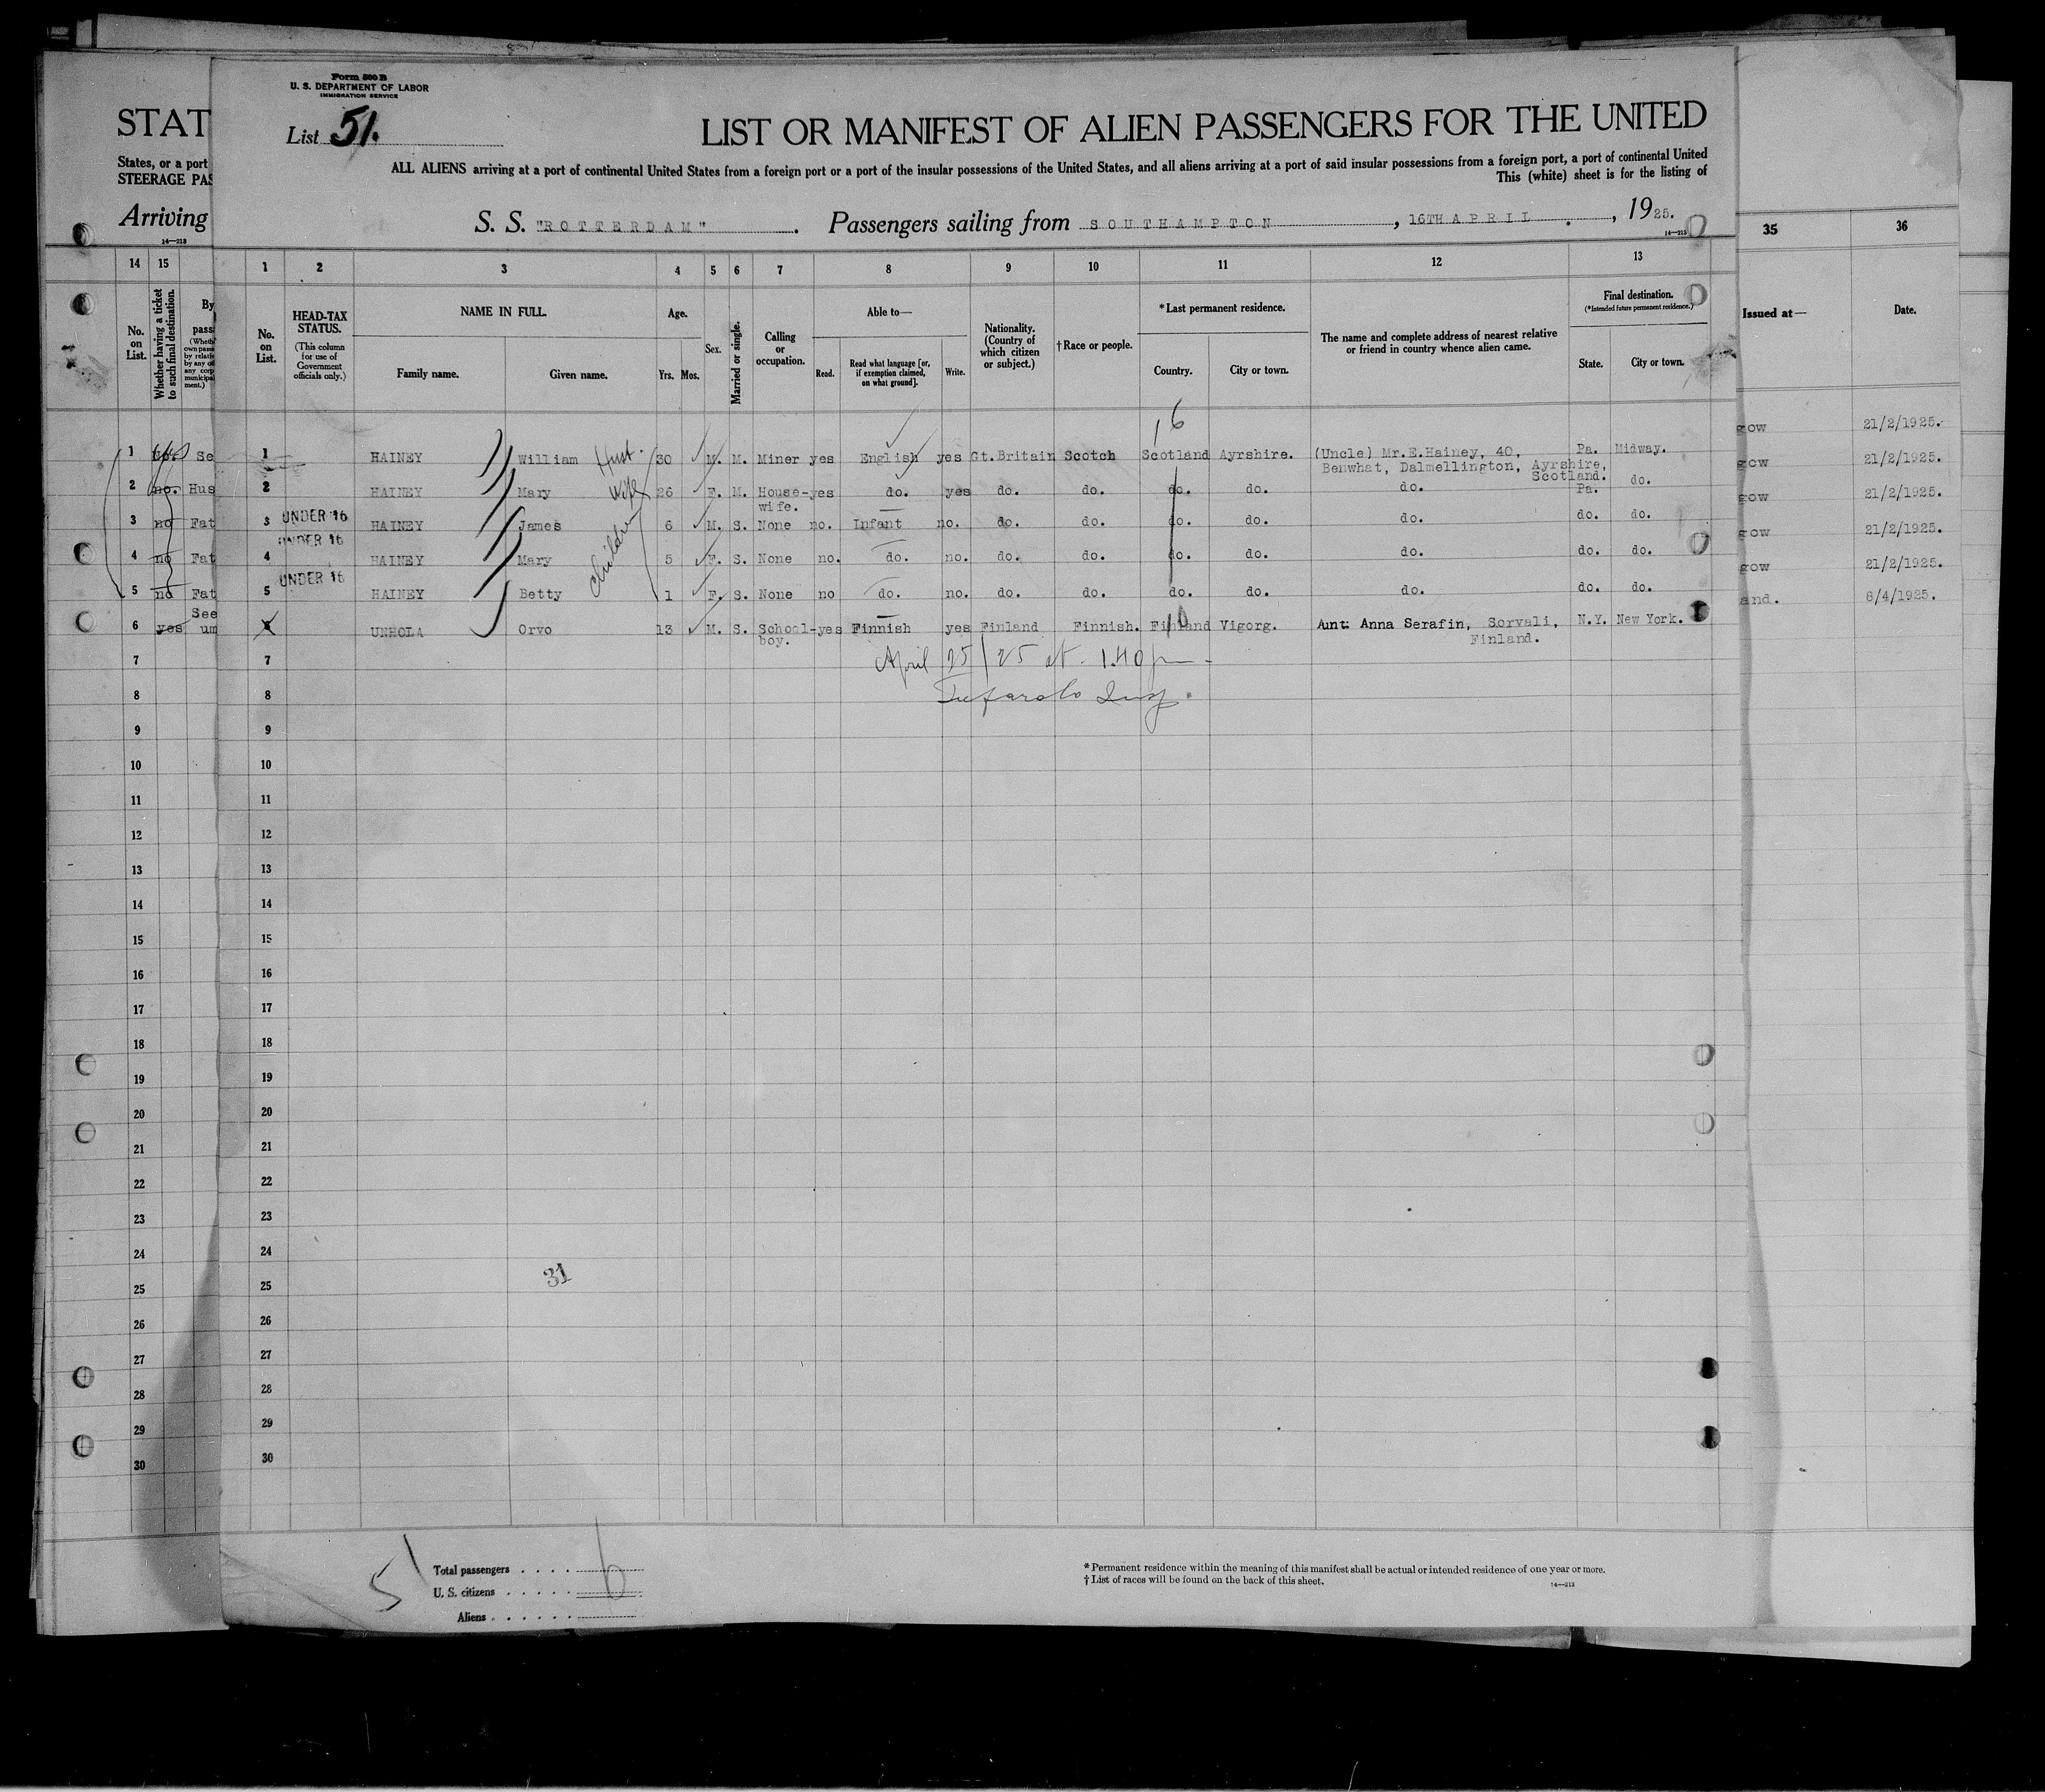 Form 500 B
U. S. DEPARTMENT OF LABOR
IMMIGRATION SERVICE
List 51.
LIST OR MANIFEST OF ALIEN PASSENGERS FOR THE UNITED
ALL ALIENS arriving at a port of continental United States from a foreign port or a port of the insular possessions of the United States, and all aliens arriving at a port of said insular possessions from a foreign port, a port of continental United
This (white) sheet is for the listing of
S. S. "ROTTERDAM". Passengers sailing from SOUTHAMPTON, 16TH APRIL, 1925.
14—213
STAT
States, or a port
STEERAGE PAS
Arriving
14—213
14 15
No. on List.
Whether having a ticket to such final destination.
By
pass
1 2 3 4 5 6 7 8 9 10 11 12 13
No. on List.
HEAD-TAX STATUS.
(This column for use of Government officials only.)
NAME IN FULL.
Family name. Given name.
Age.
Yrs. Mos.
Sex.
Married or single.
Calling or occupation.
Able to—
Read. Read what language [or, if exemption claimed, on what ground]. Write.
Nationality. (Country of which citizen or subject.)
†Race or people.
*Last permanent residence.
Country. City or town.
The name and complete address of nearest relative or friend in country whence alien came.
Final destination.
(*Intended future permanent residence.)
State. City or town.
35 36
Issued at— Date.
16
1 Se 1 HAINEY William Hust. 30 M. M. Miner yes English yes Gt.Britain Scotch Scotland Ayrshire. (Uncle) Mr.E.Hainey, 40, Pa. Midway. gow 21/2/1925.
Benwhat, Dalmellington, Ayrshire,
Scotland.
2 no. Hus 2 HAINEY Mary Wife 26 F. M. House- yes do. yes do. do. do. do. do. Pa. do. gow 21/2/1925.
wife.
3 no Fat 3 UNDER 16 HAINEY James 6 M. S. None no. Infant no. do. do. do. do. do. do. do. gow 21/2/1925.
Children
4 no Fat 4 UNDER 16 HAINEY Mary 5 F. S. None no. do. no. do. do. do. do. do. do. do. gow 21/2/1925.
5 no Fat 5 UNDER 16 HAINEY Betty 1 F. S. None no do. no. do. do. do. do. do. do. do. gow 21/2/1925.
See
6 yes um 6 UNHOLA Orvo 13 M. S. School- yes Finnish yes Finland Finnish. Finland Vigorg. Aunt: Anna Serafin, Sorvali, N.Y. New York. and. 8/4/1925.
boy. Finland.
7 7 April 25/25 at 1.40 pm
8 8
9 9
10 10
11 11
12 12
13 13
14 14
15 15
16 16
17 17
18 18
19 19
20 20
21 21
22 22
23 23
24 24
25 25
31
26 26
27 27
28 28
29 29
30 30
51
Total passengers . . . . 6
U. S. citizens . . . . .
Aliens . . . . . .
*Permanent residence within the meaning of this manifest shall be actual or intended residence of one year or more.
†List of races will be found on the back of this sheet.
14—213